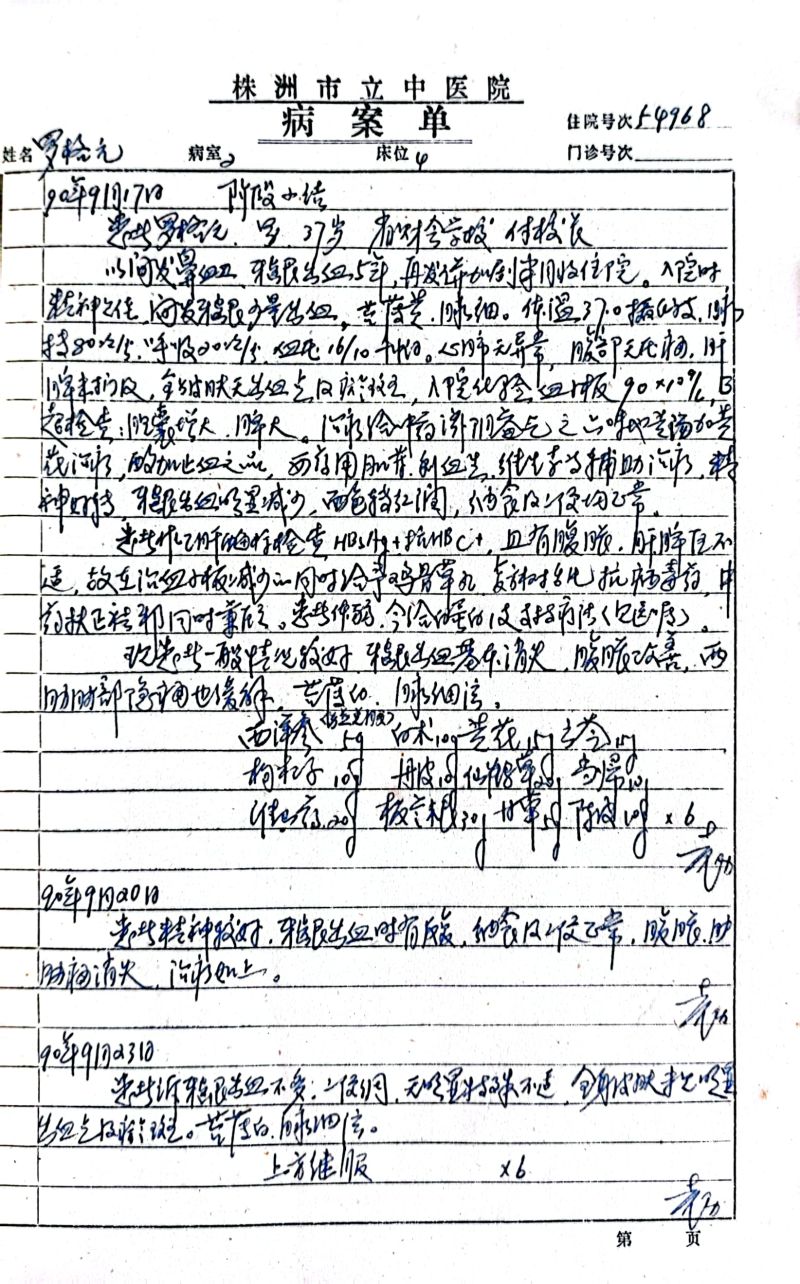 株洲市立中医院
病案单
住院号次 54968
姓名 罗格元 病室 2 床位 4 门诊号次
90年9月17日 阶段小结
患者罗格元、男、37岁 省财会学校 付校长
以间发鼻衄、牙龈出血5年,再发并加剧半月收住院。入院时
精神欠佳,间发牙龈少量出血,苔薄黄,脉细。体温37.0摄氏度,脉
搏80次/分,呼吸20次/分,血压16/10千帕。心肺无异常,腹部无压痛,肝
脾未扪及,全身皮肤无出血点及瘀斑,入院化验血小板90×10⁹/L,B
超检查:胆囊增大,脾大。治疗给中药滋阴益气之六味地黄汤加黄
芪治疗,酌加止血之品,西药用肌苷、利血生、维生素等辅助治疗,精
神好转,牙龈出血明显减少,面色转红润,纳食及二便均正常。
患者作乙肝两对半检查 HBsAg+抗HBC+,且有腹胀,肝脾区不
适,故在治血小板减少的同时给 抗病毒药,中
药扶正祛邪同时兼顾。患者体弱,今给白蛋白以支持疗法(见医嘱)。
现患者一般情况较好,牙龈出血基本消失,腹胀改善,两
胁肋部隐痛也缓解,苔薄白,脉细弦。
西洋参 5g 白术10g 黄芪15g 云苓15g
枸杞子10g 丹皮10g 仙鹤草20g 当归10g
淮山药20g 板兰根30g 甘草5g 陈皮10g ×6
90年9月20日
患者精神较好,牙龈出血时有反复,纳食及二便正常,腹胀、胁
肋痛消失,治疗如上。
90年9月23日
患者诉牙龈出血不多,二便调,无明显特殊不适,全身皮肤未见明显
出血点及瘀斑。苔薄白,脉细弦。
上方继服 ×6
第 页